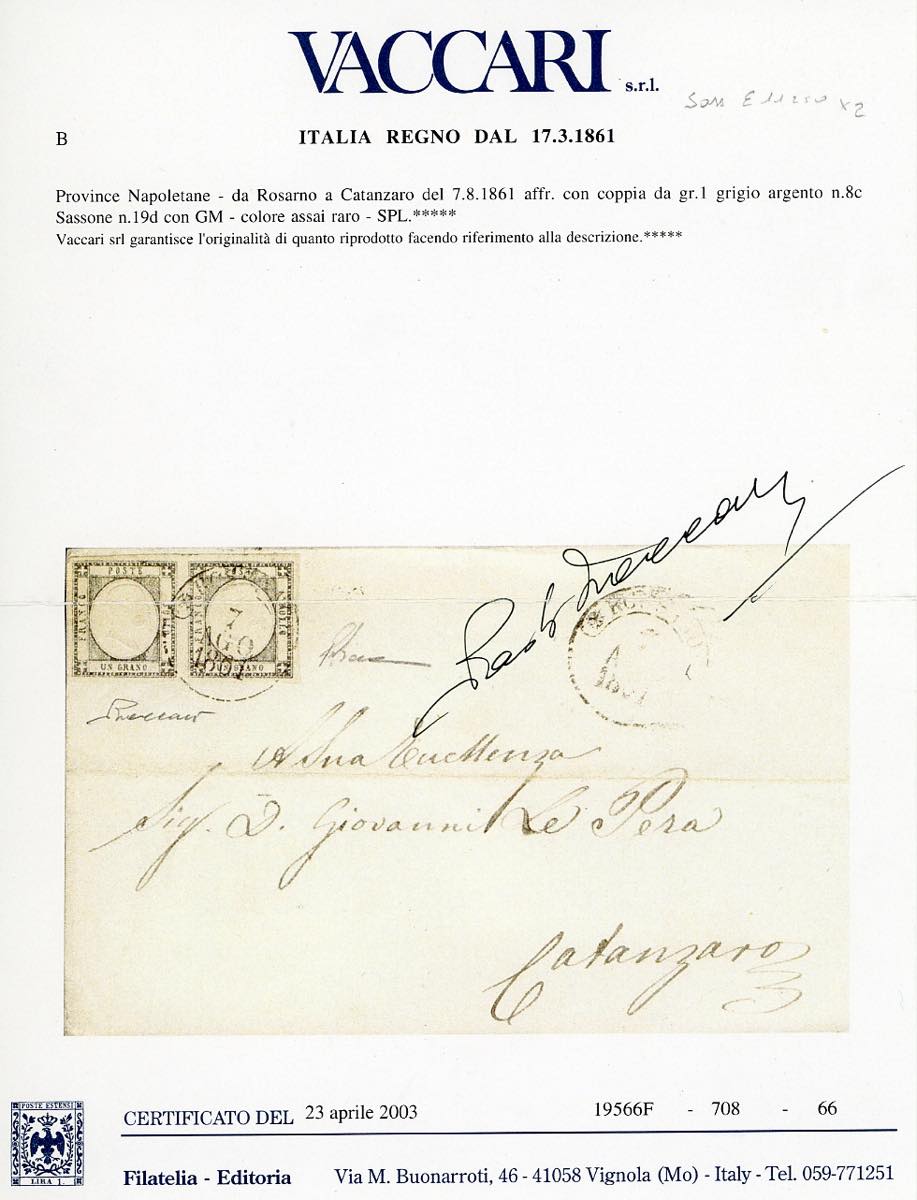 VACCARI s.r.l.
x2
B
ITALIA REGNO DAL 17.3.1861
Province Napoletane - da Rosarno a Catanzaro del 7.8.1861 affr. con coppia da gr.1 grigio argento n.8c
Sassone n.19d con GM - colore assai raro - SPL.*****
Vaccari srl garantisce l'originalità di quanto riprodotto facendo riferimento alla descrizione.*****
POSTE
FRANCO
BOLLO
UN GRANO
FRANCO
BOLLO
UN GRANO
7
AGO
1861
Vaccari
A Sua Eccellenza
Sig. D. Giovanni Le Pera
Catanzaro
POSTE ESTENSI
LIRA 1.
CERTIFICATO DEL 23 aprile 2003
19566F - 708 - 66
Filatelia - Editoria Via M. Buonarroti, 46 - 41058 Vignola (Mo) - Italy - Tel. 059-771251